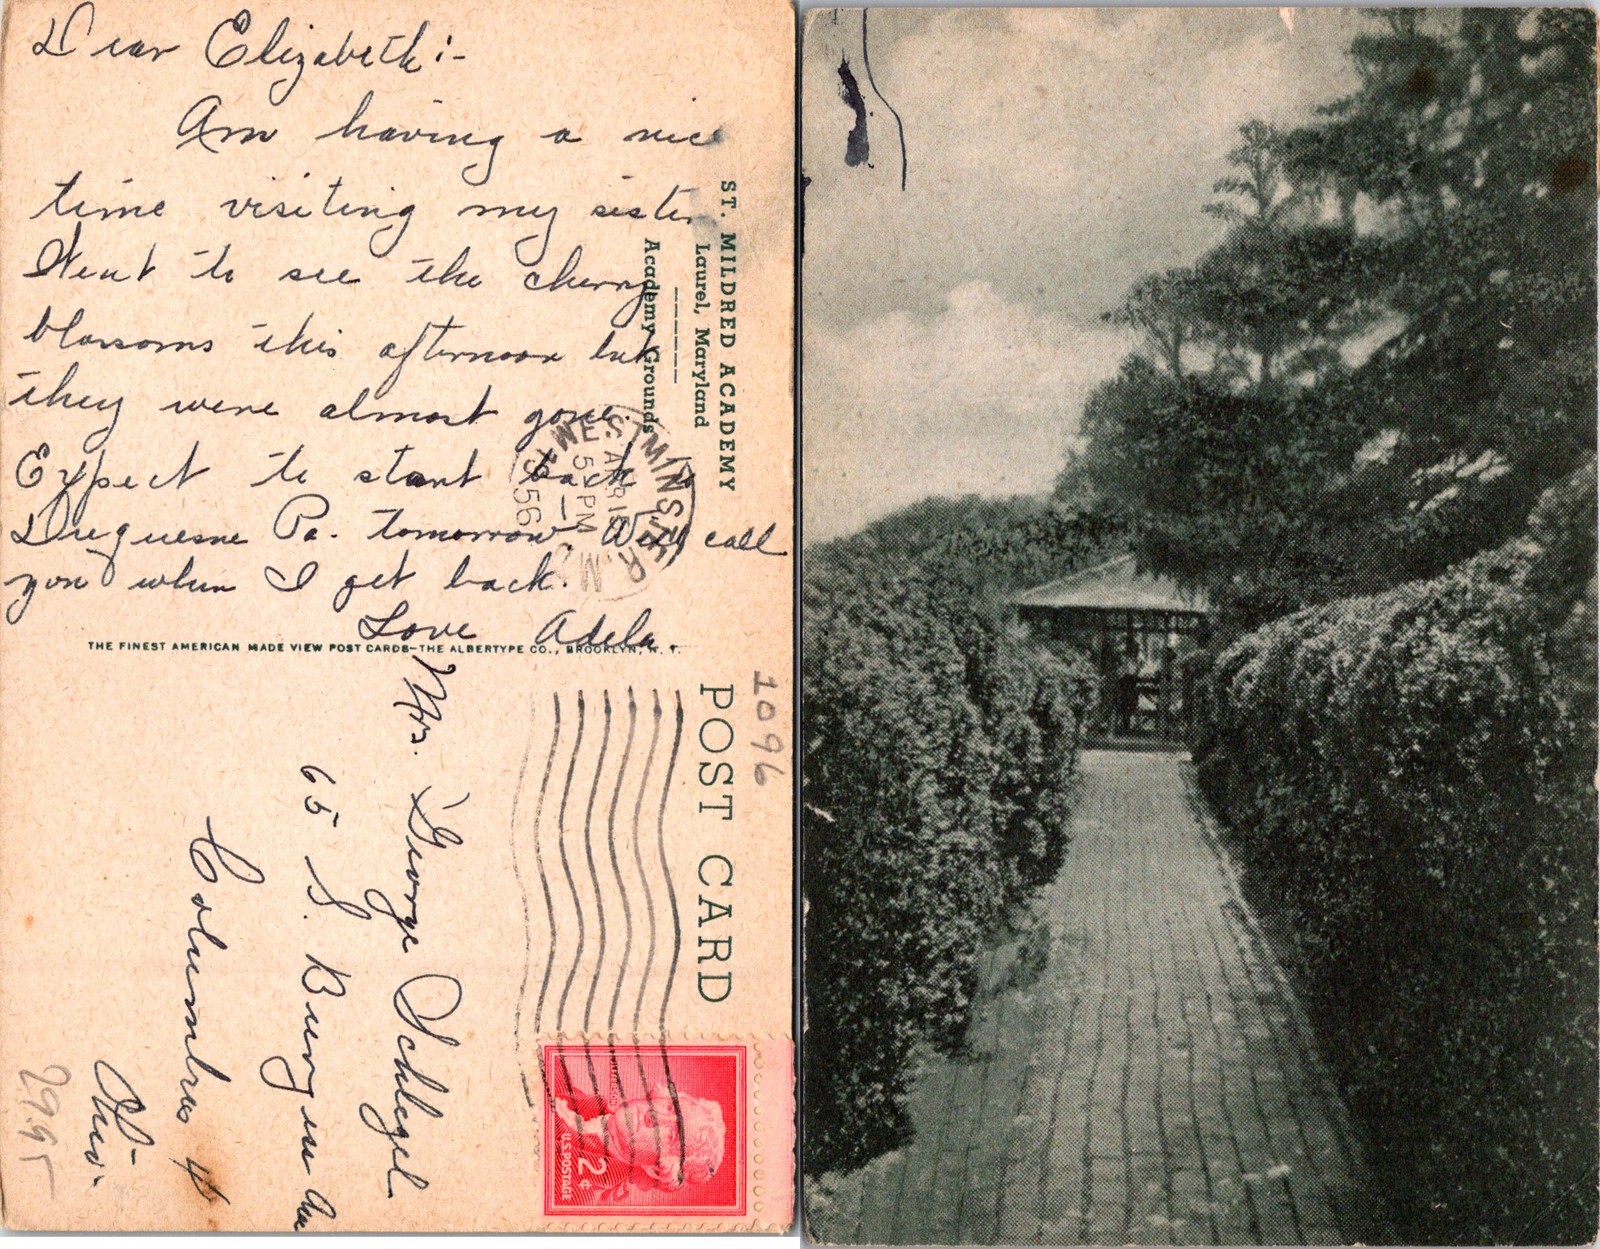 Dear Elizabeth:-
Am having a nice
time visiting my sister
Went to see the cherry
blossoms this afternoon but
they were almost gone.
Expect to start back to
Duquesne Pa. tomorrow. Will call
you when I get back.
Love Adela.
ST. MILDRED ACADEMY
Laurel, Maryland
Academy Grounds
WESTMINSTER
APR 15
5 - PM
1956
MD.
THE FINEST AMERICAN MADE VIEW POST CARDS—THE ALBERTYPE CO., BROOKLYN, N. Y.
1096
POST CARD
Mrs. George Schlegel
65 S. Burgess Ave
Columbus 4
Ohio.
JEFFERSON
2¢
U.S. POSTAGE
2995